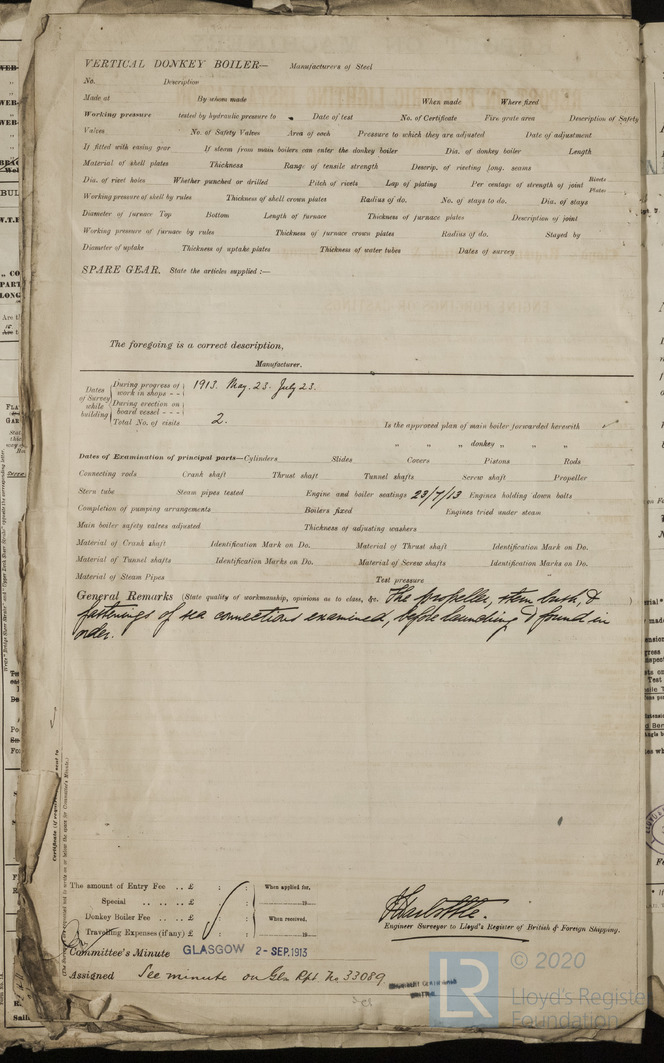 VERTICAL DONKEY BOILER— Manufacturers of Steel
No. Description
Made at By whom made When made Where fixed
Working pressure tested by hydraulic pressure to Date of test No. of Certificate Fire grate area Description of Safety
Valves No. of Safety Valves Area of each Pressure to which they are adjusted Date of adjustment
If fitted with easing gear If steam from main boilers can enter the donkey boiler Dia. of donkey boiler Length
Material of shell plates Thickness Range of tensile strength Descrip. of riveting long. seams
Dia. of rivet holes Whether punched or drilled Pitch of rivets Lap of plating Per centage of strength of joint Rivets Plates
Working pressure of shell by rules Thickness of shell crown plates Radius of do. No. of stays to do. Dia. of stays
Diameter of furnace Top Bottom Length of furnace Thickness of furnace plates Description of joint
Working pressure of furnace by rules Thickness of furnace crown plates Radius of do. Stayed by
Diameter of uptake Thickness of uptake plates Thickness of water tubes Dates of survey
SPARE GEAR. State the articles supplied :—
The foregoing is a correct description,
Manufacturer.
Dates of Survey while building
During progress of work in shops - - 1913. May. 23. July 23.
During erection on board vessel - - -
Total No. of visits 2.
Is the approved plan of main boiler forwarded herewith
„ „ „ donkey „ „ „
Dates of Examination of principal parts—Cylinders Slides Covers Pistons Rods
Connecting rods Crank shaft Thrust shaft Tunnel shafts Screw shaft Propeller
Stern tube Steam pipes tested Engine and boiler seatings 23/7/13 Engines holding down bolts
Completion of pumping arrangements Boilers fixed Engines tried under steam
Main boiler safety valves adjusted Thickness of adjusting washers
Material of Crank shaft Identification Mark on Do. Material of Thrust shaft Identification Mark on Do.
Material of Tunnel shafts Identification Marks on Do. Material of Screw shafts Identification Marks on Do.
Material of Steam Pipes Test pressure
General Remarks (State quality of workmanship, opinions as to class, &c. The propeller, stern bush, &
fastenings of sea connections examined, before launching & found in
order.
The amount of Entry Fee .. £ : : When applied for,
Special .. .. £ : : 19
Donkey Boiler Fee .. .. £ : : When received,
Travelling Expenses (if any) £ : : 19
Engineer Surveyor to Lloyd's Register of British & Foreign Shipping.
Committee's Minute GLASGOW 2-SEP.1913
Assigned See minute on Gls Rpt No 33089
LR © 2020
Lloyd's Register
Foundation